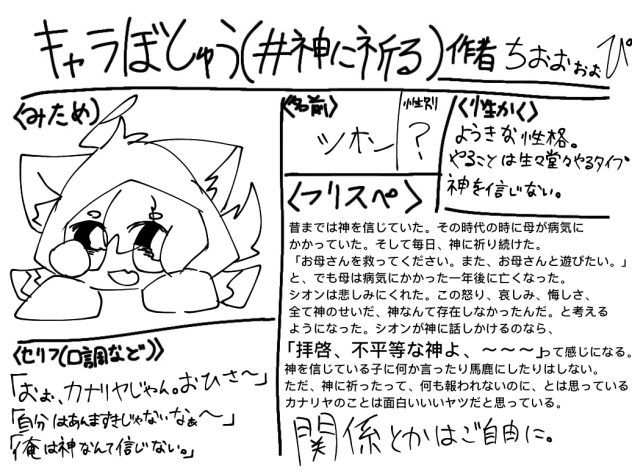 キャラぼしゅう(#神に祈る)作者ちおぉぉぉぴ
<みため>
<名前>
ツホン
性別
?
<性かく>
ようきな性格。
やることは生々堂々やるタイプ
神を信じない。
<フリスペ>
昔までは神を信じていた。その時代の時に母が病気に
かかっていた。そして毎日、神に祈り続けた。
「お母さんを救ってください。また、お母さんと遊びたい。」
と、でも母は病気にかかった一年後に亡くなった。
シオンは悲しみにくれた。この怒り、哀しみ、悔しさ、
全て神のせいだ、神なんて存在しなかったんだ。と考える
ようになった。シオンが神に話しかけるのなら、
「拝啓、不平等な神よ、〜〜〜」って感じになる。
神を信じている子に何か言ったり馬鹿にしたりはしない。
ただ、神に祈ったって、何も報われないのに、とは思っている
カナリヤのことは面白いいいヤツだと思っている。
<セリフ(口調など)>
「おぉ、カナリヤじゃん。おひさ〜」
「自分はあんますきじゃないなぁ〜」
「俺は神なんて信じない。」
関係とかはご自由に。